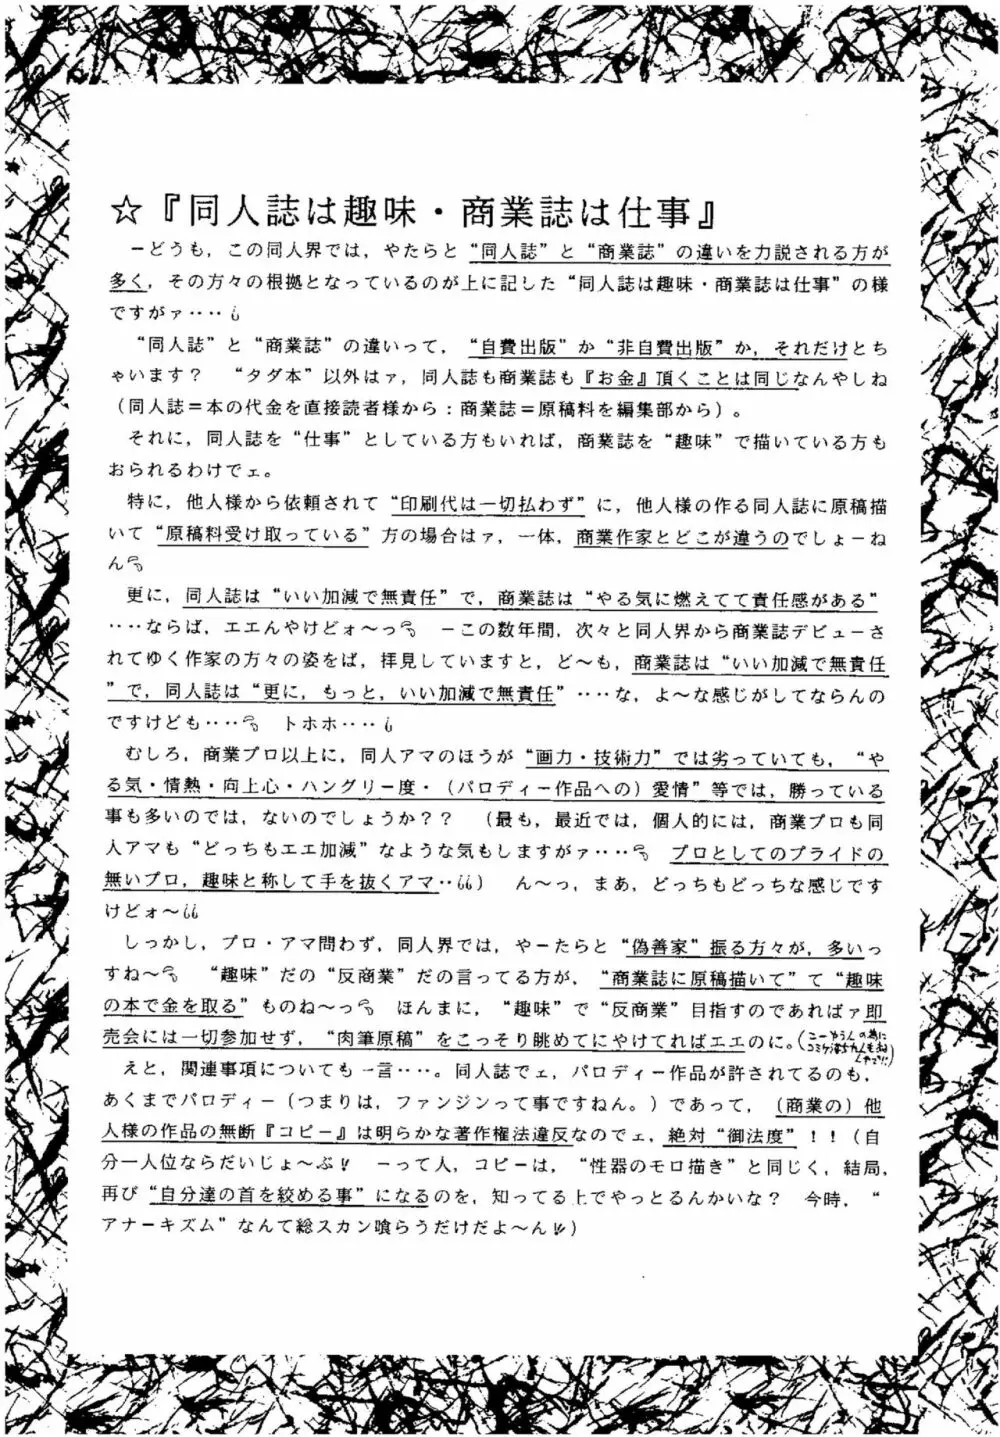 ☆『同人誌は趣味・商業誌は仕事』
－どうも，この同人界では，やたらと“同人誌”と“商業誌”の違いを力説される方が
多く，その方々の根拠となっているのが上に記した“同人誌は趣味・商業誌は仕事”の様
ですがァ‥‥
“同人誌”と“商業誌”の違いって，“自費出版”か“非自費出版”か，それだけとち
ゃいます？　“タダ本”以外はァ，同人誌も商業誌も『お金』頂くことは同じなんやしね
（同人誌＝本の代金を直接読者様から：商業誌＝原稿料を編集部から）。
それに，同人誌を“仕事”としている方もいれば，商業誌を“趣味”で描いている方も
おられるわけでェ。
特に，他人様から依頼されて“印刷代は一切払わず”に，他人様の作る同人誌に原稿描
いて“原稿料受け取っている”方の場合はァ，一体，商業作家とどこが違うのでしょーね
ん
更に，同人誌は“いい加減で無責任”で，商業誌は“やる気に燃えてて責任感がある”
‥‥ならば，エエんやけどォ～っ　－この数年間，次々と同人界から商業誌デビューさ
れてゆく作家の方々の姿をば，拝見していますと，ど～も，商業誌は“いい加減で無責任
”で，同人誌は“更に，もっと，いい加減で無責任”‥‥な，よ～な感じがしてならんの
ですけども‥‥　トホホ‥‥
むしろ，商業プロ以上に，同人アマのほうが“画力・技術力”では劣っていても，“や
る気・情熱・向上心・ハングリー度・（パロディー作品への）愛情”等では，勝っている
事も多いのでは，ないのでしょうか？？　（最も，最近では，個人的には，商業プロも同
人アマも“どっちもエエ加減”なような気もしますがァ‥‥　プロとしてのプライドの
無いプロ，趣味と称して手を抜くアマ‥）　ん～っ，まあ，どっちもどっちな感じです
けどォ～
しっかし，プロ・アマ問わず，同人界では，やーたらと“偽善家”振る方々が，多いっ
すね～　“趣味”だの“反商業”だの言ってる方が，“商業誌に原稿描いて”て“趣味
の本で金を取る”ものね～っ　ほんまに，“趣味”で“反商業”目指すのであればァ即
売会には一切参加せず，“肉筆原稿”をこっそり眺めてにやけてればエエのに。
えと，関連事項についても一言‥‥。同人誌でェ，パロディー作品が許されてるのも，
あくまでパロディー（つまりは，ファンジンって事ですねん。）であって，（商業の）他
人様の作品の無断『コピー』は明らかな著作権法違反なのでェ，絶対“御法度”！！（自
分一人位ならだいじょ～ぶ！　－って人，コピーは，“性器のモロ描き”と同じく，結局，
再び“自分達の首を絞める事”になるのを，知ってる上でやっとるんかいな？　今時，“
アナーキズム”なんて総スカン喰らうだけだよ～ん！）